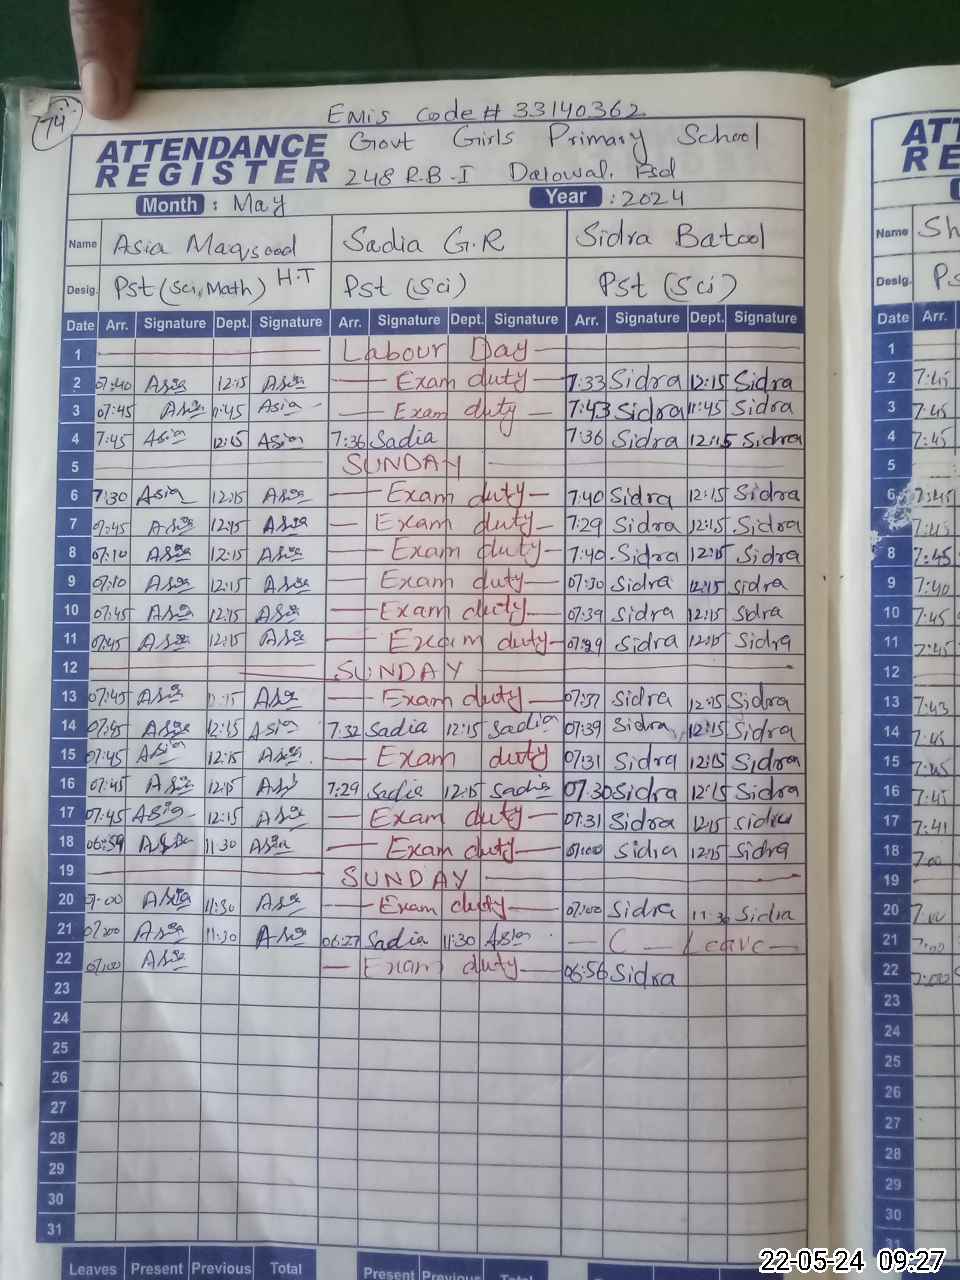 74
EMIS Code # 33140362
ATTENDANCE REGISTER
Govt Girls Primary School
248 R.B-I Dalowal, Fsd
Month : May Year : 2024
Name Asia Maqsood Sadia G.R Sidra Batool
Desig. Pst (Sci, Math) H.T Pst (Sci) Pst (Sci)
Date Arr. Signature Dept. Signature Arr. Signature Dept. Signature Arr. Signature Dept. Signature
1 Labour Day
2 07:40 Asia 12:15 Asia Exam duty 7:33 Sidra 12:15 Sidra
3 07:45 Asia 11:45 Asia Exam duty 7:43 Sidra 11:45 Sidra
4 7:45 Asia 12:15 Asia 7:36 Sadia 7:36 Sidra 12:15 Sidra
5 SUNDAY
6 7:30 Asia 12:15 Asia Exam duty 7:40 Sidra 12:15 Sidra
7 07:45 Asia 12:15 Asia Exam duty 7:29 Sidra 12:15 Sidra
8 07:10 Asia 12:15 Asia Exam duty 7:40 Sidra 12:15 Sidra
9 07:10 Asia 12:15 Asia Exam duty 07:30 Sidra 12:15 Sidra
10 07:45 Asia 12:15 Asia Exam duty 07:39 Sidra 12:15 Sidra
11 07:45 Asia 12:15 Asia Exam duty 07:29 Sidra 12:15 Sidra
12 SUNDAY
13 07:45 Asia 12:15 Asia Exam duty 07:37 Sidra 12:15 Sidra
14 07:45 Asia 12:15 Asia 7:32 Sadia 12:15 Sadia 07:39 Sidra 12:15 Sidra
15 07:45 Asia 12:15 Asia Exam duty 07:31 Sidra 12:15 Sidra
16 07:45 Asia 12:15 Asia 7:29 Sadia 12:15 Sadia 07:30 Sidra 12:15 Sidra
17 07:45 Asia 12:15 Asia Exam duty 07:31 Sidra 12:15 Sidra
18 06:59 Asia 11:30 Asia Exam duty 07:00 Sidra 12:15 Sidra
19 SUNDAY
20 7:00 Asia 11:30 Asia Exam duty 07:00 Sidra 11:30 Sidra
21 07:00 Asia 11:30 Asia 06:27 Sadia 11:30 Asia C Leave
22 07:00 Asia Exam duty 06:56 Sidra
23
24
25
26
27
28
29
30
31
Leaves Present Previous Total Present Previous Total
Name Sh
Desig. Ps
Date Arr.
1
2 7:45
3 7:45
4 7:45
5
6 7:45
7:45
8 7:45
9 7:40
10 7:45
11 7:45
12
13 7:43
14 7:45
15 7:45
16 7:45
17 7:41
18 7:00
19
20 7:00
21 7:00
22 7:00
23
24
25
26
27
28
29
30
31
22-05-24 09:27